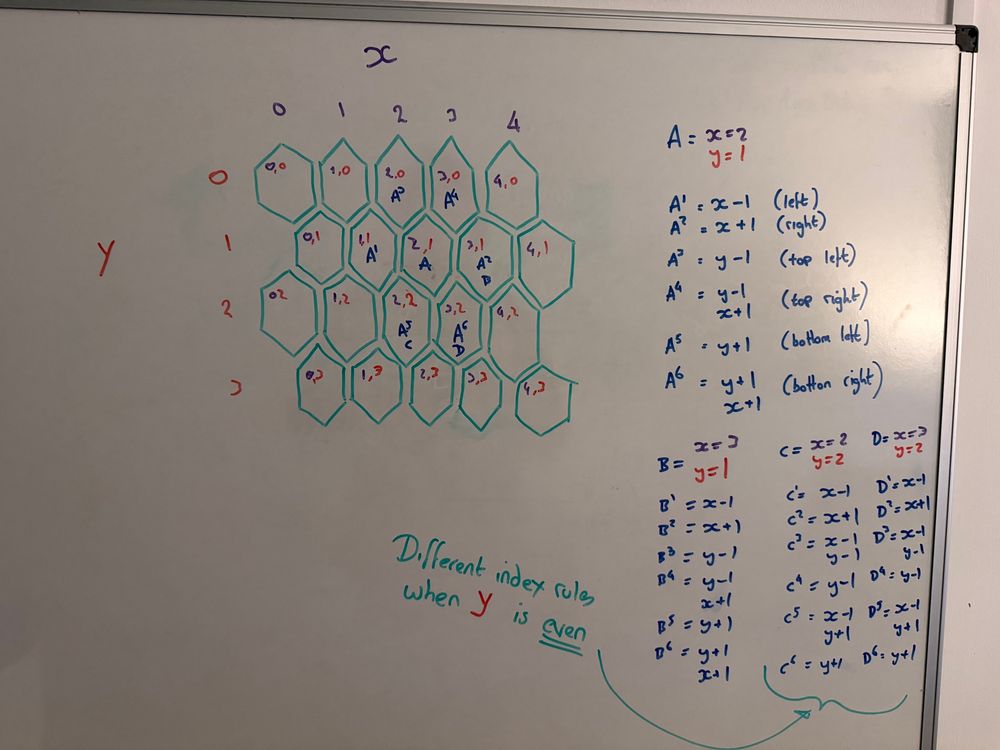 x
0 1 2 3 4
y
0
0,0 1,0 2,0 3,0 4,0
A³ A⁴
1
0,1 1,1 2,1 3,1 4,1
A¹ A A²
2
0,2 1,2 2,2 3,2 4,2
A⁵ A⁶
C D
3
0,3 1,3 2,3 3,3 4,3
A = x=2
y=1
A¹ = x-1 (left)
A² = x+1 (right)
A³ = y-1 (top left)
A⁴ = y-1 (top right)
x+1
A⁵ = y+1 (bottom left)
A⁶ = y+1 (botton right)
x+1
B = x=3
y=1
B¹ = x-1
B² = x+1
B³ = y-1
B⁴ = y-1
x+1
B⁵ = y+1
B⁶ = y+1
x+1
C = x=2
y=2
C¹= x-1
C² = x+1
C³ = x-1
y-1
C⁴ = y-1
C⁵ = x-1
y+1
C⁶ = y+1
D= x=3
y=2
D¹=x-1
D²=x+1
D³=x-1
y-1
D⁴=y-1
D⁵=x-1
y+1
D⁶=y+1
Different index rules
when y is even